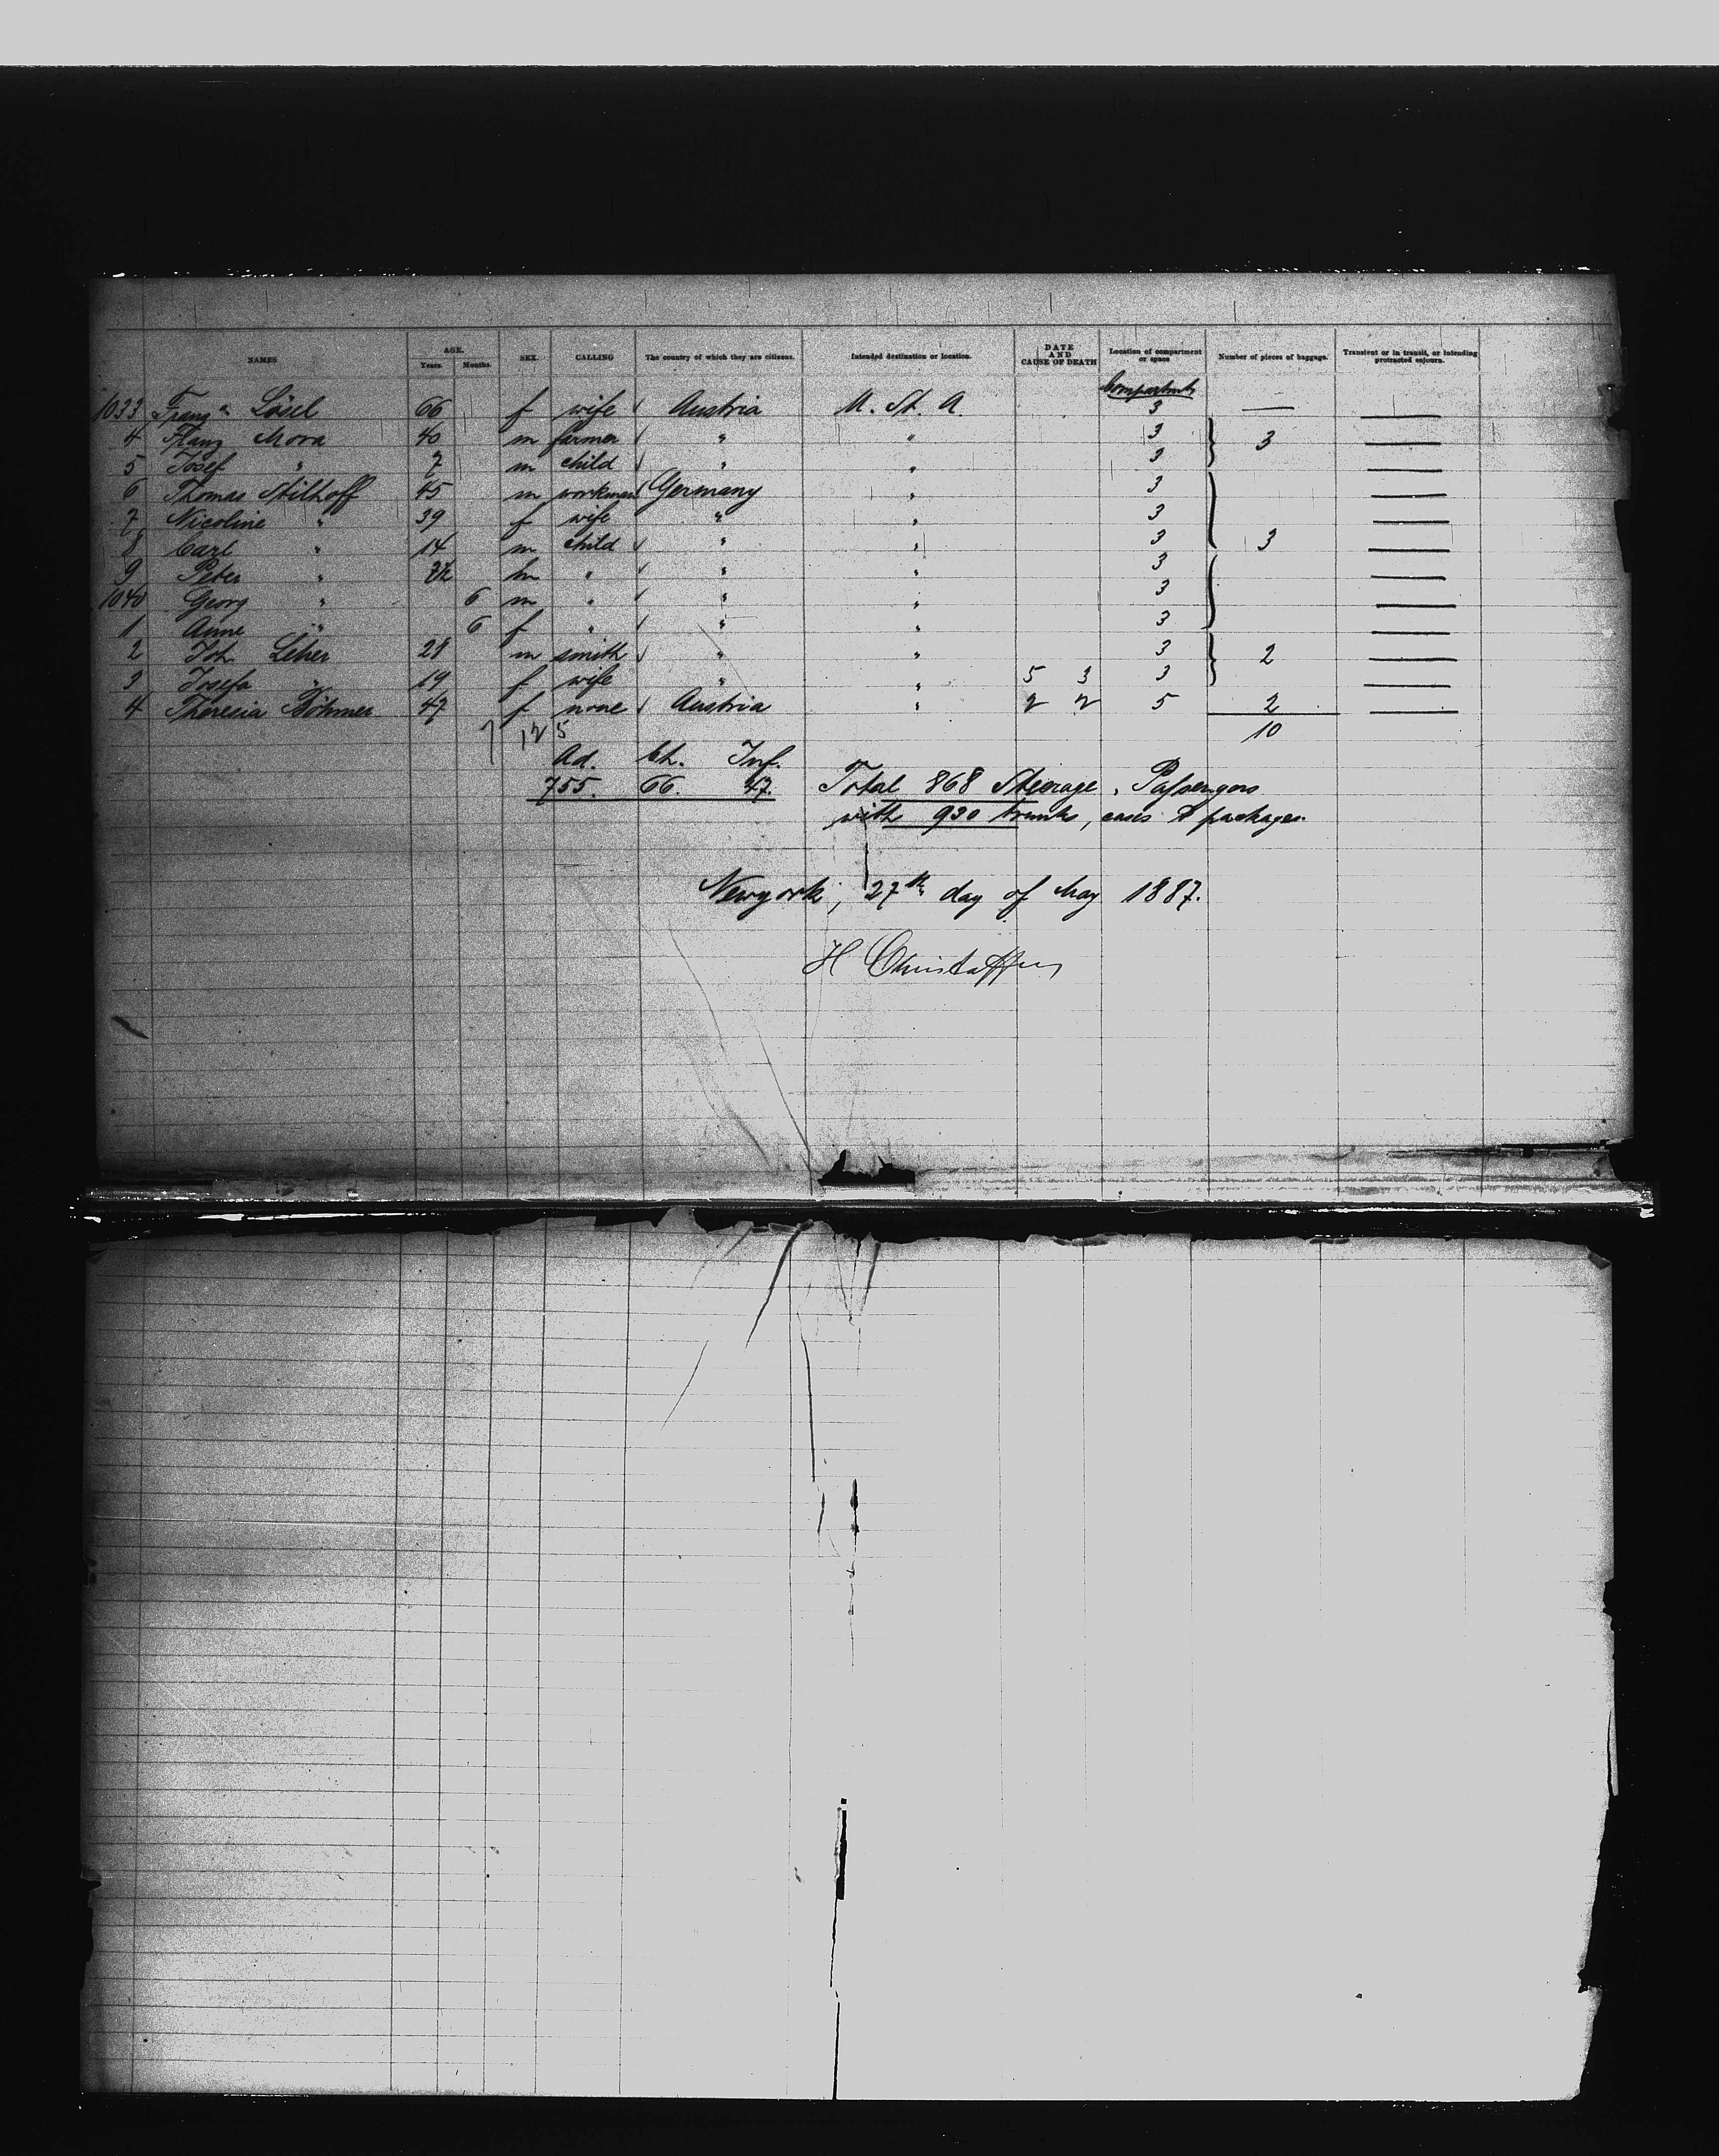 NAMES AGE. Years. Months. SEX. CALLING The country of which they are citizens. Intended destination or location. DATE AND CAUSE OF DEATH Location of compartment or space Number of pieces of baggage. Transient or in transit, or intending protracted sojourn.
Compartments
1033 Franz a Lösel 66 f wife Austria U. St. A. 3 —
4 Franz Mora 40 m farmer " " 3 3
5 Josef " 7 m child " " 3
6 Thomas Stilhoff 45 m workman Germany " 3
7 Nicoline " 39 f wife " " 3
8 Carl " 14 m child " " 3 3
9 Peter " m " " " 3
1040 Georg " 6 m " " " 3
1 Anne " 6 f " " " 3
2 Joh. Leher 28 m smith " " 3 2
3 Josefa " 19 f wife " " 5 3 3
4 Theresia Böhmer 47 f none Austria " 2 2 5 2
7 12 5 10
Ad. Ch. Inf.
755. 66. 47. Total 868 Steerage Passengers
with 930 trunks, cases & packages.
Newyork, 27th day of May 1887.
H Christoffers